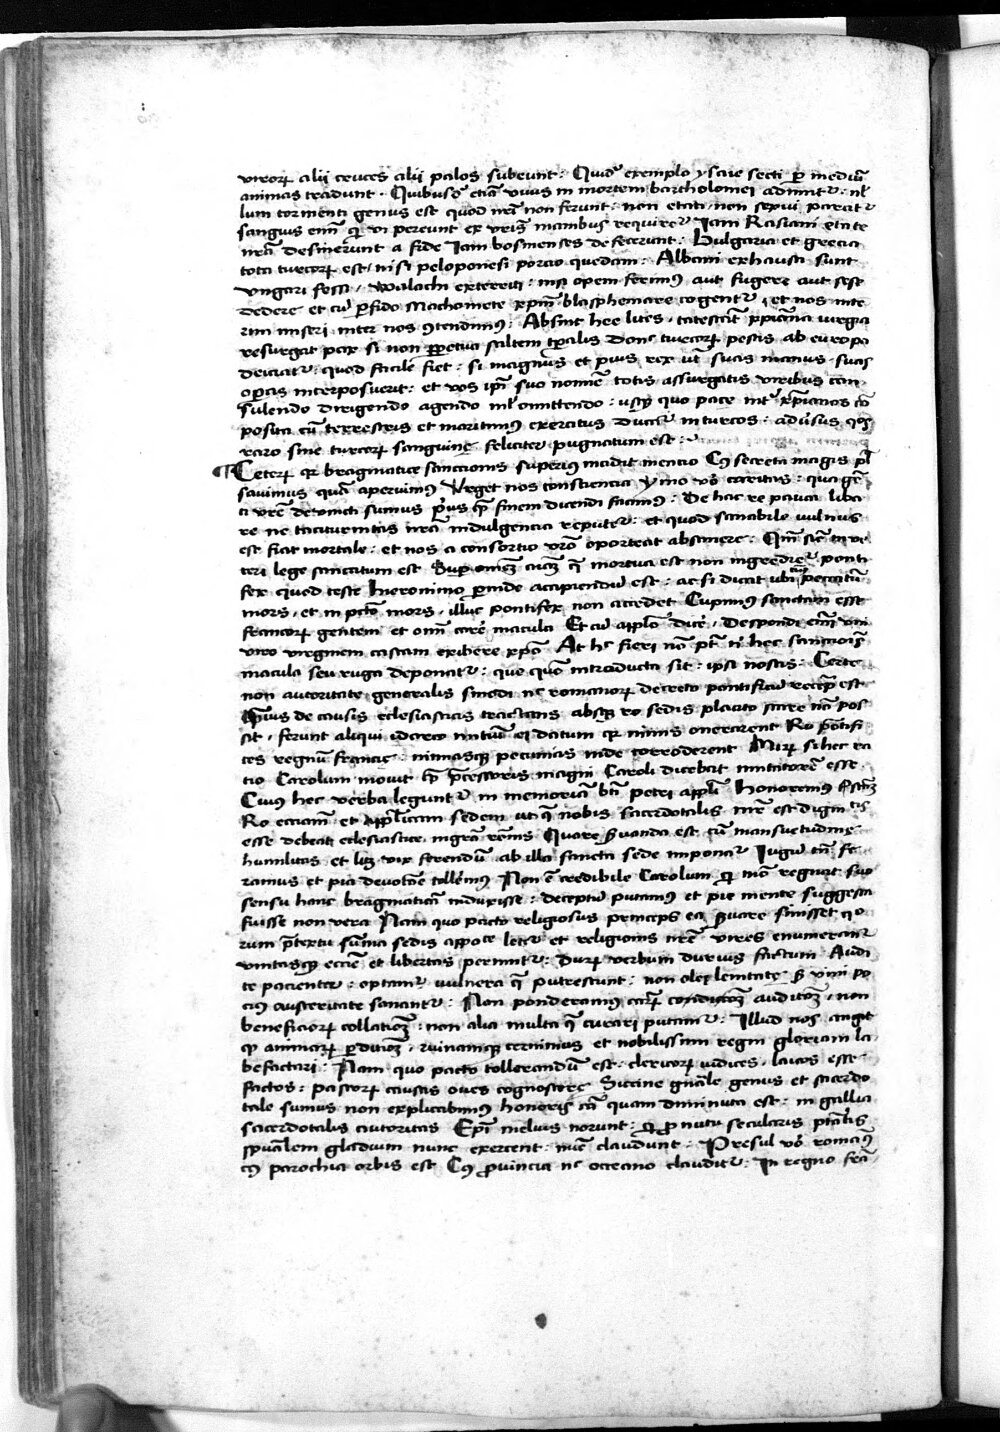 viror͛ alij cruces alij palos subeunt : Quidā exemplo ysaie secti ꝑ mediū
animas tradunt · Quibusdā etiā viuis in mortem bartholomei adimitr̄ : nl̄
lum tormenti genus est quod nr̄i non ferunt : non etati non sexui parcitr̄
sanguis enī qui vi pereunt ex vr̄is manibus requiretr̄ Iam Rasiani etate
nr̄a desinerunt a fide Iam bosinenses defecerunt : Bulgaria et grecia
tota turcor͛ est / nisi peloponesi porcio quedam : Albani exhausti sunt
vngari fessi / Walachi exterriti : nisi opem ferimus aut fugere aut sese
dedere et cū ꝑfido Machomete xp̄m blasphemare cogentr̄ , et nos inte
rim miseri inter nos ꝯtendimꝰ : Absint hee lites · tacescāt xp̄iana iurgia
resurgat pax si non ꝑpetua saltem tꝑalis donec turcor͛ pestis ab europa
deiiciatr̄ : quod facile fiet : si magnus et pius rex vr̄ suas manus · suas
operas interposuerit : et vos ip̄i suo nomīe totis assurgatis viribus con
sulendo dirigendo agendo nl̄ omittendo : usqꝫ quo pace int̄ xp̄ianos cō
posita cū terrestris et maritimus exercitus ducatr̄ in turcos : aduersus quos
raro sine turcor͛ sanguine feliciter pugnatum est :
¶ Ceter͛ qr̄ bragmatice sanctionis superius incidit mencio Cꝰ secreta magis pl̄
sauimus quā aperuimꝰ Vrget nos consciencia ymo vr̄a caritas : qua gēn
ti vr̄e deuincti sumus priꝰ qꝫ finem dicendi facimꝰ : De hac re pauca liba
re ne taciturnitas nr̄a indulgencia reputetr̄ : et quod sanabile vulnus
est fiat mortale : et nos a consortio vr̄o oporteat abstinere : Qm̄ sic in ve
teri lege sancitum est Suꝑ om̄ē aīaꝫ q̄ mortua est non ingredietr̄ ponti
fex quod teste Hieronimo ꝑinde accipiendū est : ac si dicat ubi peccatū
mors · et in pctō mors · illuc pontifex non accedet Cupimus sanctam esse
francor͛ gentem et om̄i carē macula Et cū app̄lo dicē · Despondi enī vni
viro virginem castam exhibere xp̄o At hͦ fieri nō pt̄ ni hec sanctiōis
macula seu ruga deponatr̄ : que quō introducta sit : ipsi nostis : Certe
non autoritate generalis sinodi nec romanor͛ decreto pontificū recepta est
Quis de causis eclesiasticis tractans absqꝫ ro sedis placito stare nō pos
sit · ferunt aliqui idcirco initiū ei datum qr̄ nimis onerarent Ro pontifi
ces regnū francie : nimiasqꝫ pecunias inde corroderent Mir͛ si hec ra
tio Carolum mouit qꝫ p̄cessoris magni Caroli dicebat imitatorē esse
Cuiꝰ hec verba leguntr̄ in memoriā bt̄i petri app̄li honoremus sctām
Ro eccīam et app̄licam sedem ut q̄ nobis sacerdotalis mr̄ est dignitatis
esse debeat eclesiastice migrā rōnis Quare seruanda est cū mansuetudine
humilitas et licꝫ vix ferendū ab illa sancta sede imponatr̄ Iugū tn̄ fe
ramus et pia deuotōe tollemus Non ē credibile Carolum qui mō regnat suo
sensu hanc bragmaticā induxisse : deceptū putamus et pie mente suggesta
fuisse non vera Nam quo pacto religiosus princeps ea seruare sinisset quo
rum p̄textu sūma sedis app̄oce leditr̄ et religionis nr̄e vires enumerantr̄
vnitasqꝫ eccīe et libertas perimitr̄ : Dur͛ verbum durius factum Audi
te pacienter : optamꝰ vulnera q̄ putrescunt : non olei lenitate sꝫ vini po
cius austeritate sanantr̄ : Non ponderamus car͛ condicōꝫ auditōꝫ · non
beneficior͛ collatiōꝫ : non alia multa q̄ curari putamꝰ : Illud nos angit
qꝫ animar͛ ꝑdicōꝫ · ruinamqꝫ cernimus et nobilissimi regni gloriam la
befactari : Nam quo pacto tollerandū est · clericor͛ iudices · laicos esse
factos : pastor͛ causas oues cognoscere Siccine gn̄ale genus et sacerdo
tale sumus non explicabimꝰ honoris cā quam diminuta est : in gallia
sacerdotalis autoritas Ep̄i melius norunt : qui ꝓ nutu secularis ptātis
spūalem gladium nunc exercent : nūc claudunt : Presul vr̄o romanꝰ
cꝰ parochia orbis est Cꝰ ꝓuincia nec occeano clauditr̄ : In regno frā